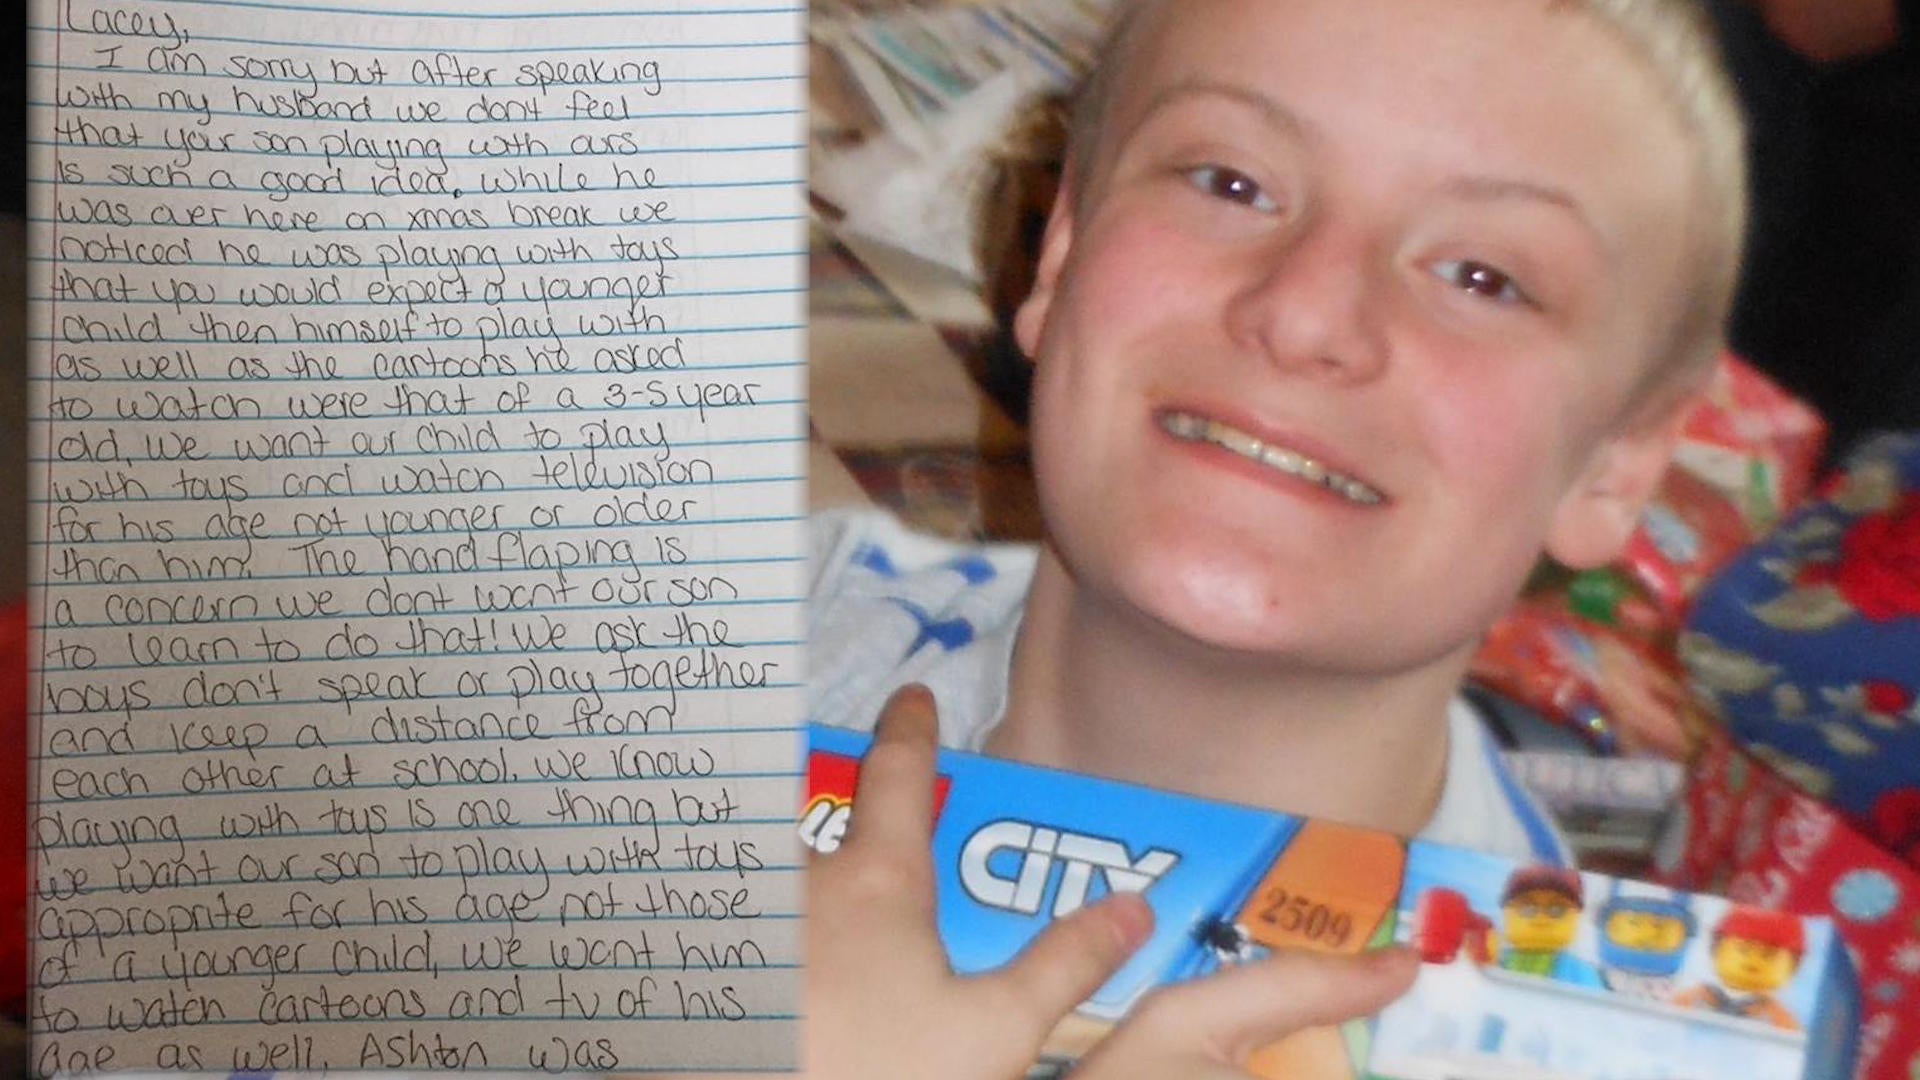 Lacey,
I am sorry but after speaking
with my husband we dont feel
that your son playing with ours
is such a good idea. While he
was over here on xmas break we
noticed he was playing with toys
that you would expect a younger
child then himself to play with
as well as the cartoons he asked
to watch were that of a 3-5 year
old, we want our child to play
with toys and watch television
for his age not younger or older
than him. The hand flaping is
a concern we dont want our son
to learn to do that! We ask the
boys don't speak or play together
and keep a distance from
each other at school. we know
playing with toys is one thing but
we want our son to play with toys
approprite for his age not those
of a younger child, we want him
to watch cartoons and tv of his
age as well. Ashton was
LE
CITY
2509